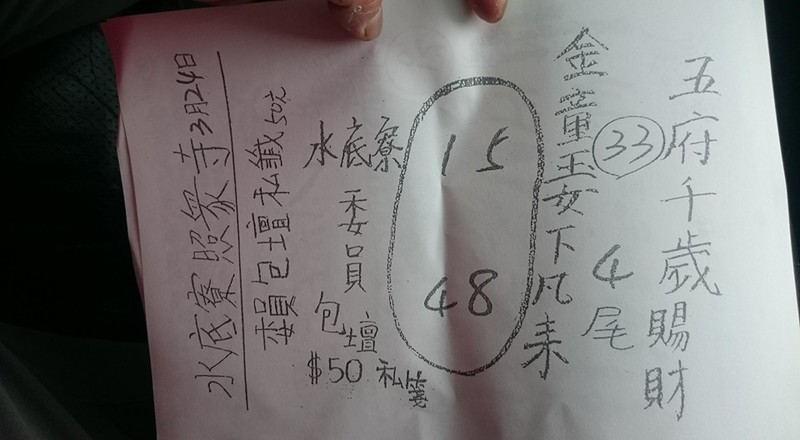 五府千歲賜財
33
4尾
金童玉女下凡来
15
48
水底寮
委員
包壇
$50 私箋
委員包壇私籤50元
水底寮照眾寺3月24日